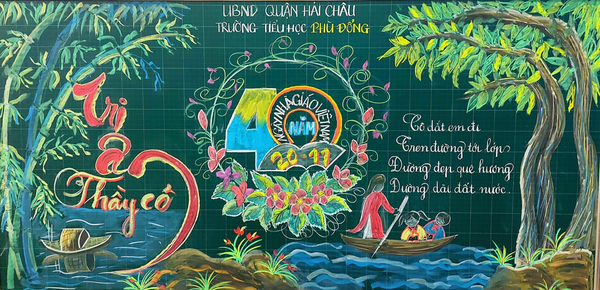 UBND QUẬN HẢI CHÂU
TRƯỜNG TIỂU HỌC PHÙ ĐỔNG
Tri
Ân
Thầy cô
40
NĂM
NGÀY NHÀ GIÁO VIỆT NAM
20-11
Cô dắt em đi
Trên đường tới lớp
Đường đẹp quê hương
Đường dài đất nước.